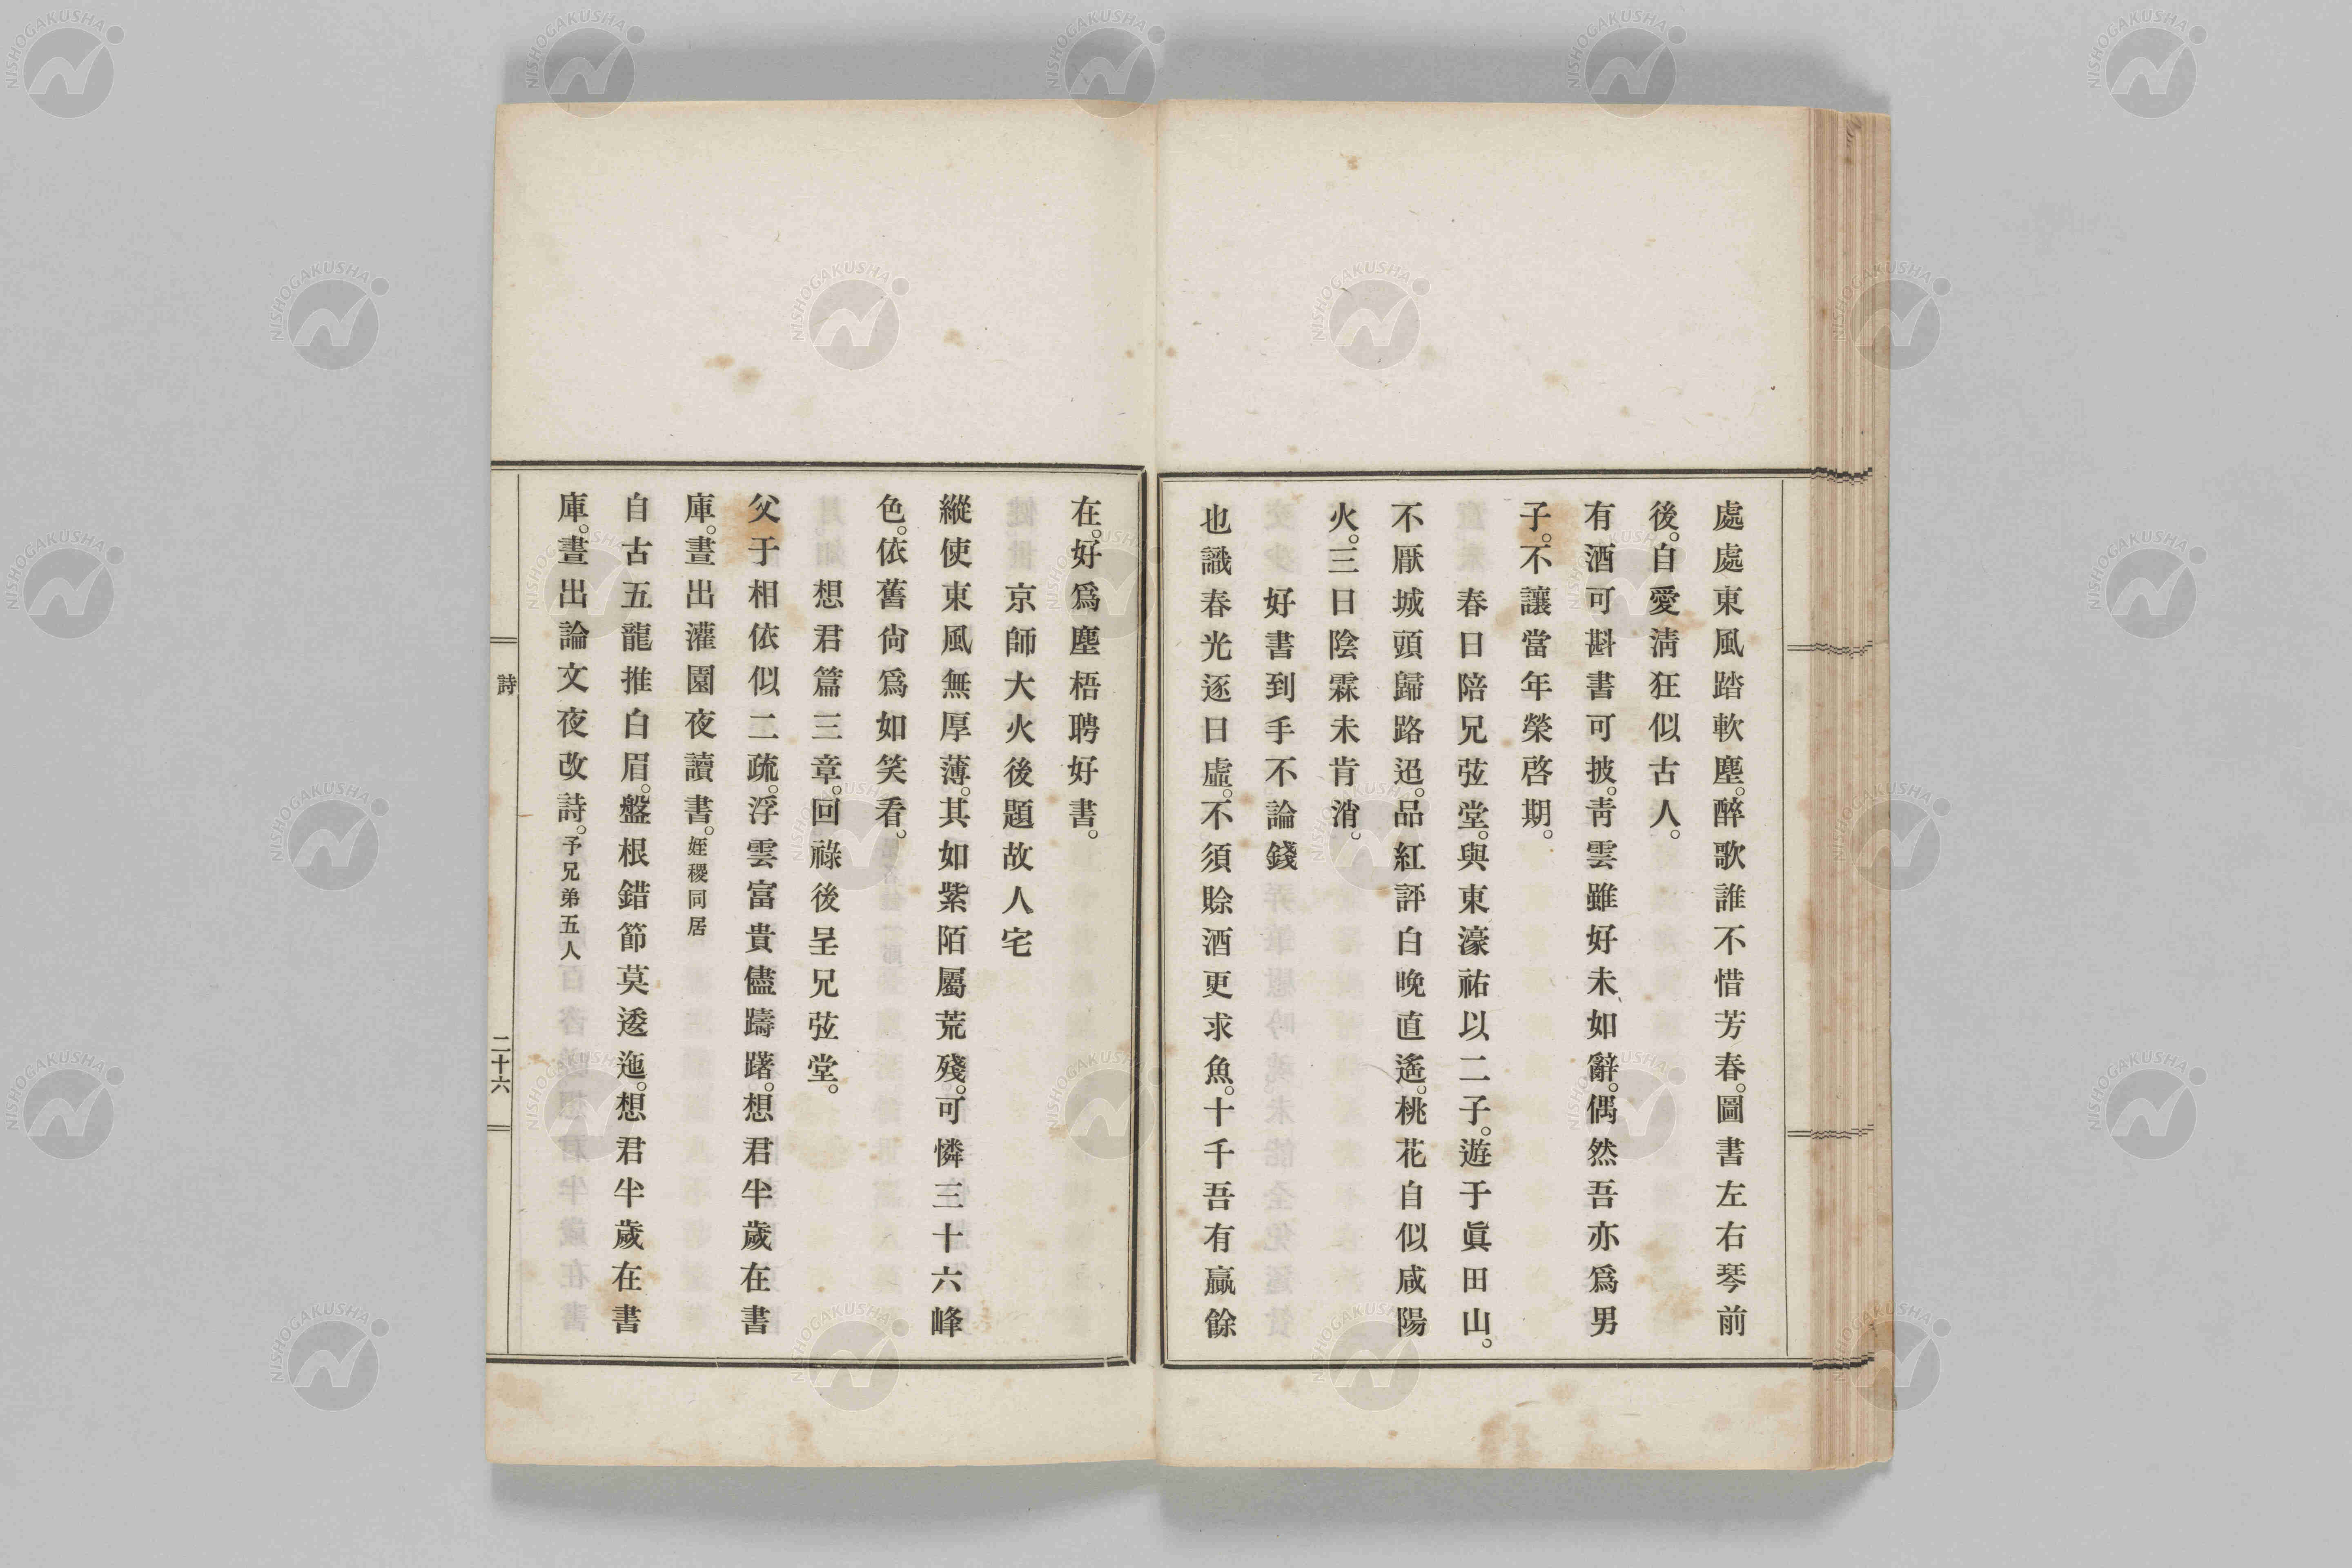 處處東風踏軟塵。醉歌誰不惜芳春。圖書左右琴前
後。自愛淸狂似古人。
有酒可斟書可披。靑雲雖好未如辭。偶然吾亦爲男
子。不讓當年榮啓期。
春日陪兄弦堂。與東濠祐以二子。遊于眞田山。
不厭城頭歸路迢。品紅評白晚直遙。桃花自似咸陽
火。三日陰霖未肯消。
好書到手不論錢
也識春光逐日虛。不須賒酒更求魚。十千吾有贏餘
在。好爲塵梧聘好書。
京師大火後題故人宅
縱使東風無厚薄。其如紫陌屬荒殘。可憐三十六峰
色。依舊尙爲如笑看。
想君篇三章。回祿後呈兄弦堂。
父于相依似二疏。浮雲富貴儘躊躇。想君半歲在書
庫。晝出灌園夜讀書。姪稷同居
自古五龍推白眉。盤根錯節莫逶迤。想君半歲在書
庫。晝出論文夜改詩。予兄弟五人
詩
二十六
NISHOGAKUSHA